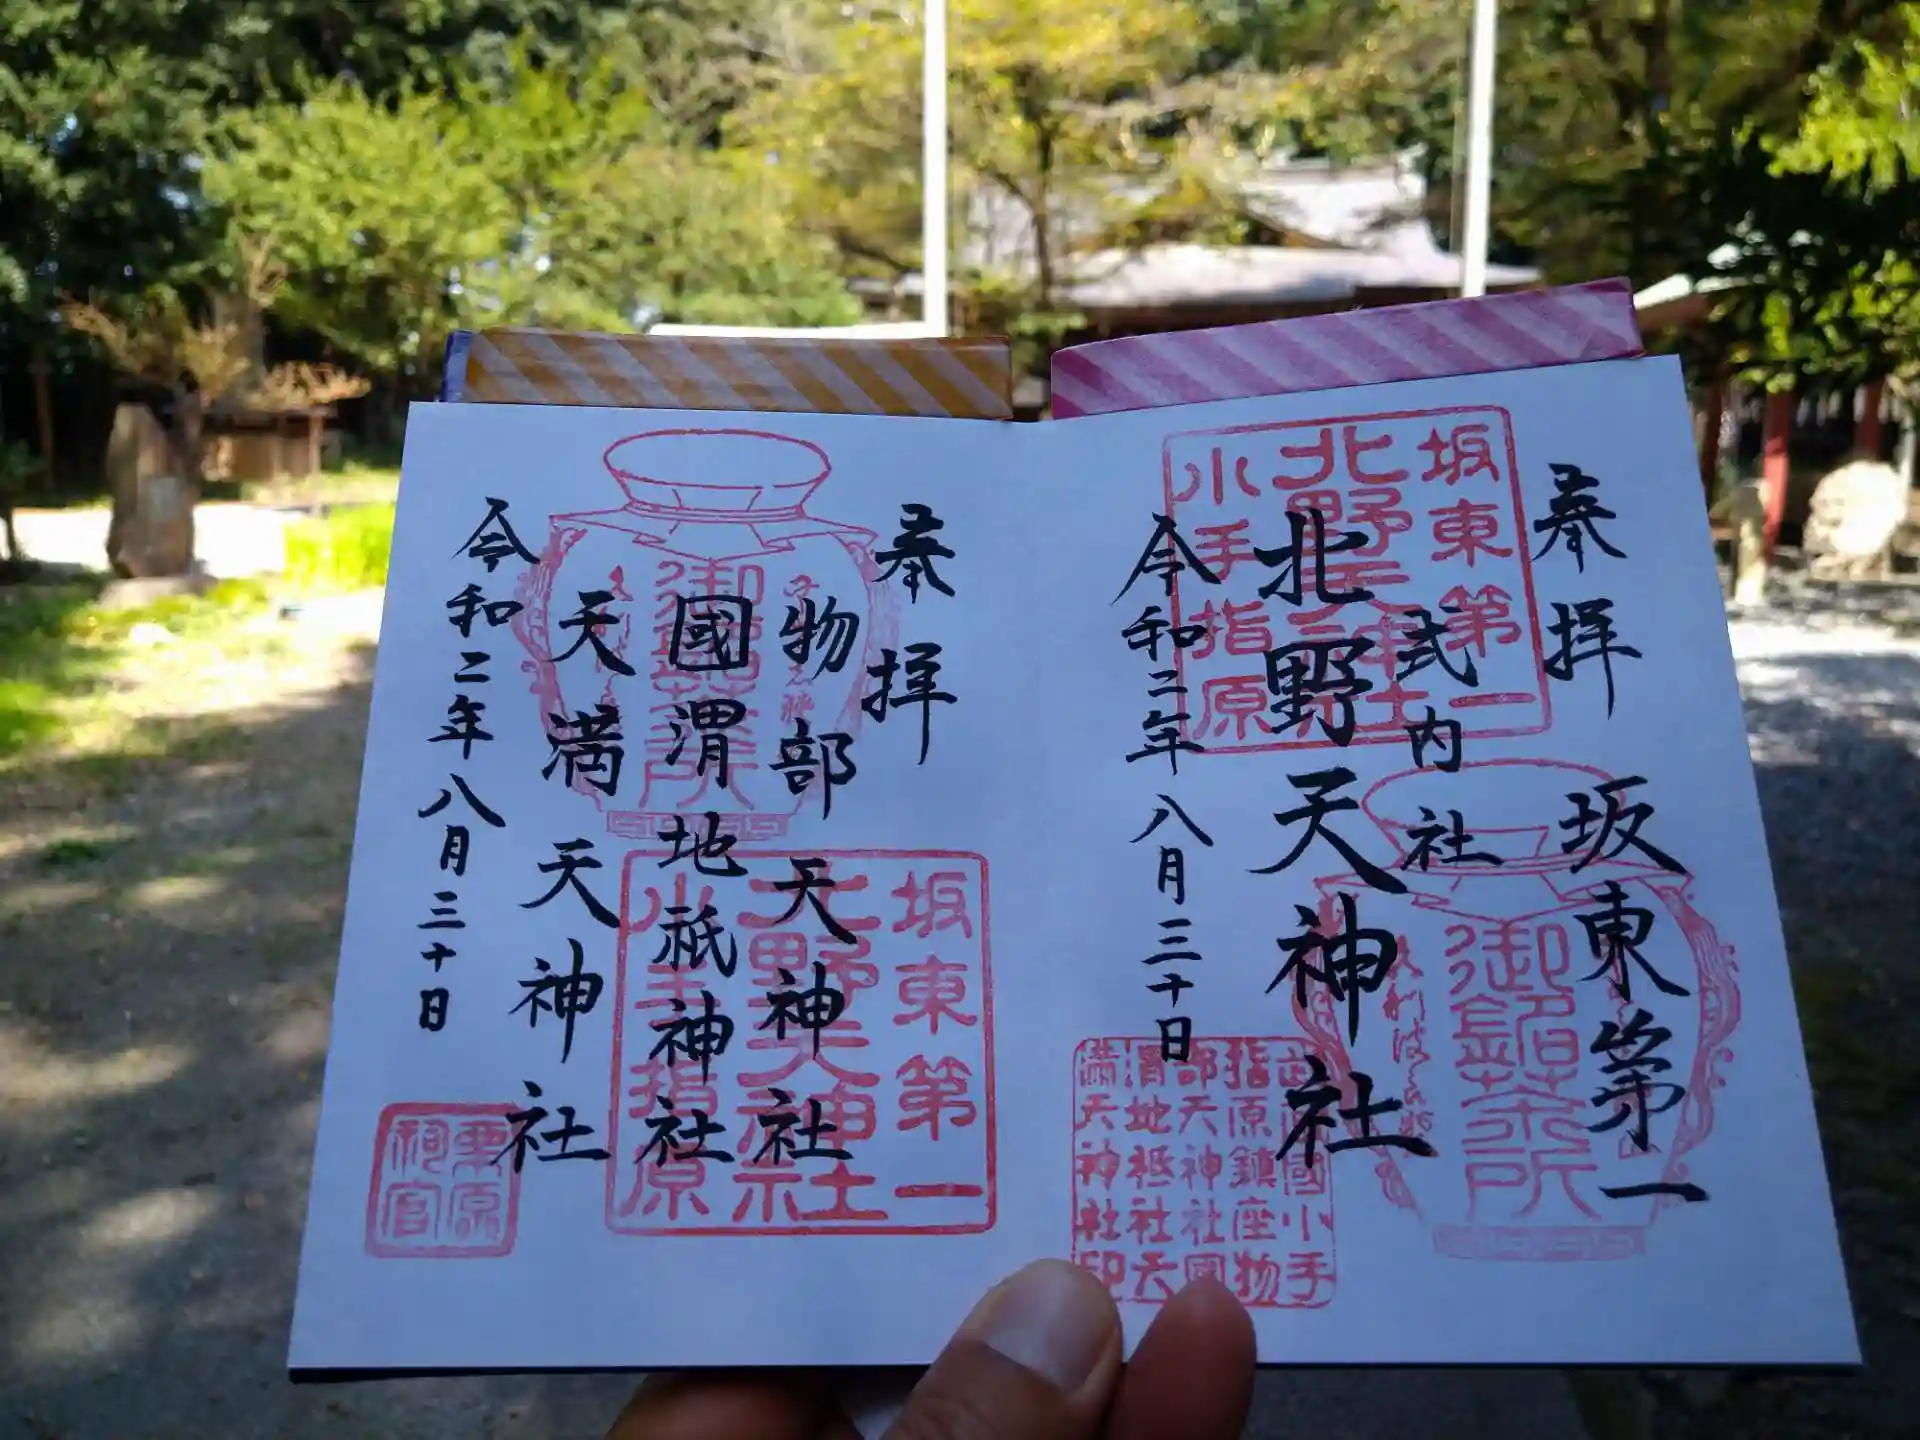 奉拝
坂東第一
式内社
北野天神社
令和二年八月三十日
坂東第一
北野天神社
小手指原
武蔵國小手
指原鎮座物
部天神社國
渭地祗社天
満天神社印
奉拝
物部天神社
國渭地祇神社
天満天神社
令和二年八月三十日
坂東第一
北野天神社
小手指原
栗原
祠官